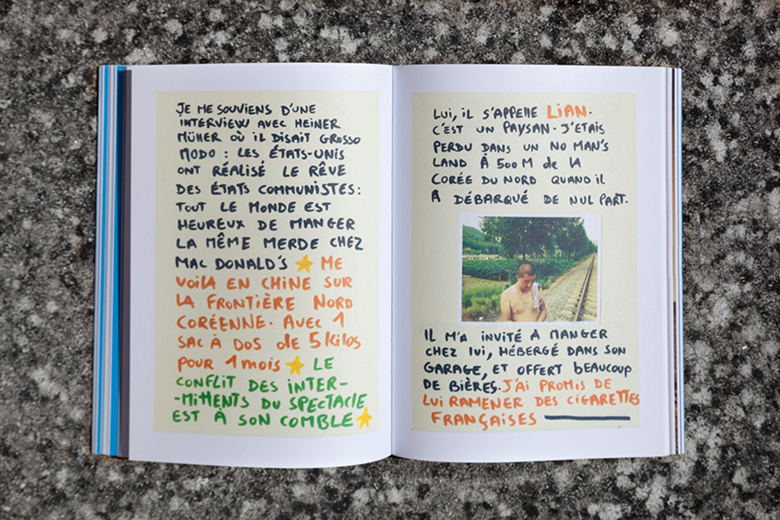 JE ME SOUVIENS D'UNE
INTERVIEW AVEC HEINER
MÜHER OÙ IL DISAIT GROSSO
MODO : LES ÉTATS-UNIS
ONT RÉALISÉ LE RÊVE
DES ÉTATS COMMUNISTES :
TOUT LE MONDE EST
HEUREUX DE MANGER
LA MÊME MERDE CHEZ
MAC DONALD'S ME
VOILÀ EN CHINE SUR
LA FRONTIÈRE NORD
CORÉENNE. AVEC 1
SAC À DOS de 5 kilos
POUR 1 MOIS LE
CONFLIT DES INTER-
-MITTENTS DU SPECTACLE
EST À SON COMBLE
LUI, IL S'APPELLE LIAN.
C'EST UN PAYSAN. J'ÉTAIS
PERDU DANS UN NO MAN'S
LAND À 500 M de LA
CORÉE DU NORD QUAND IL
A DÉBARQUÉ DE NUL PART.
IL M'A INVITÉ À MANGER
CHEZ LUI, HÉBERGÉ DANS SON
GARAGE, ET OFFERT BEAUCOUP
DE BIÈRES. J'AI PROMIS DE
LUI RAMENER DES CIGARETTES
FRANÇAISES